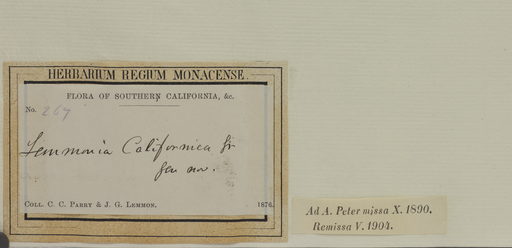 HERBARIUM REGIUM MONACENSE.
FLORA OF SOUTHERN CALIFORNIA, &c.
No. 267
Lemmonia Californica Gr
gen nov.
COLL. C. C. PARRY & J. G. LEMMON. 1876.
Ad A. Peter missa X. 1890.
Remissa V. 1904.